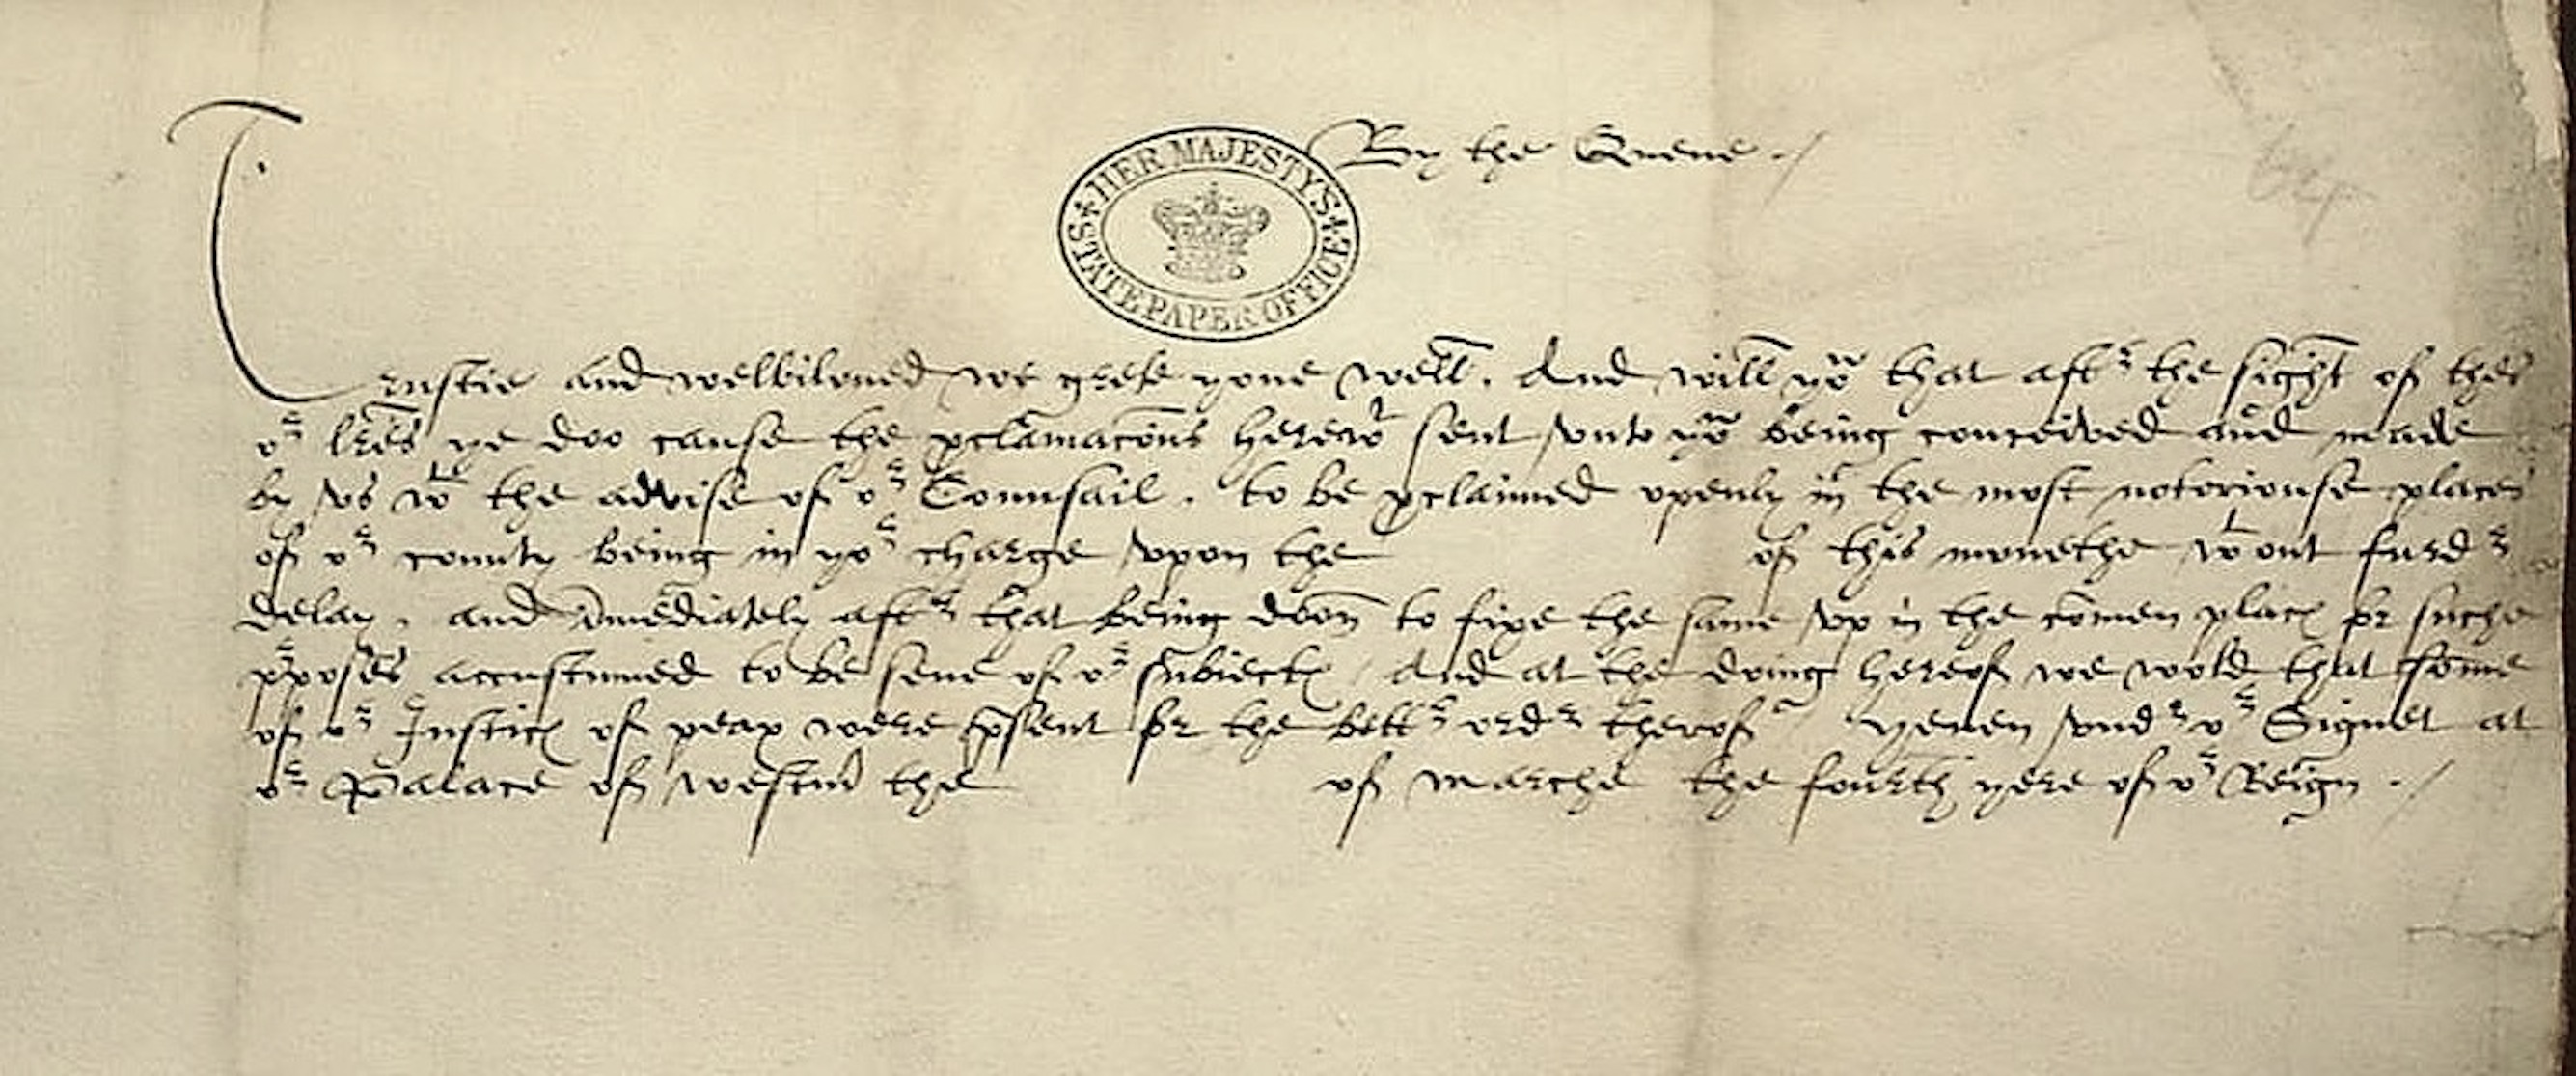 By the Quene ./
HER MAJESTY'S
STATE PAPER OFFICE
Trustie and welbiloued we grete youe well. And will yoᵘ that aftʳ the sight of thes
oʳ lres ye doo cause the pclamacons herewᵗ sent vnto yoᵘ being conceived and made
by vs wᵗ the advise of oʳ Counsail . to be pclaimed openly in the most notoriouse places
of oʳ county being in yoʳ charge vpon the of this monethe wᵗout furdʳ
delay . and imediately aftʳ that being doon to fixe the same vp in the comen places for suche
pposes accustumed to be sene of oʳ subiectes / And at the doing hereof we wold that some
of oʳ Iustices of peax were psent for the bettʳ ordʳ therof Yeuen vndʳ oʳ Signet at
oʳ Palace of westm the of marche the fourth yere of oʳ Reign ./